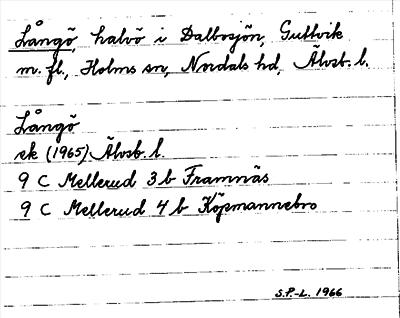 Långö, halvö i Dalbosjön, Guttvik
m. fl., Holms sn, Nordals hd, Älvsb. l.
Långö
ek (1965) Älvsb. l.
9 C Mellerud 3 b Framnäs
9 C Mellerud 4 b Köpmannebro
S.P.-L. 1966